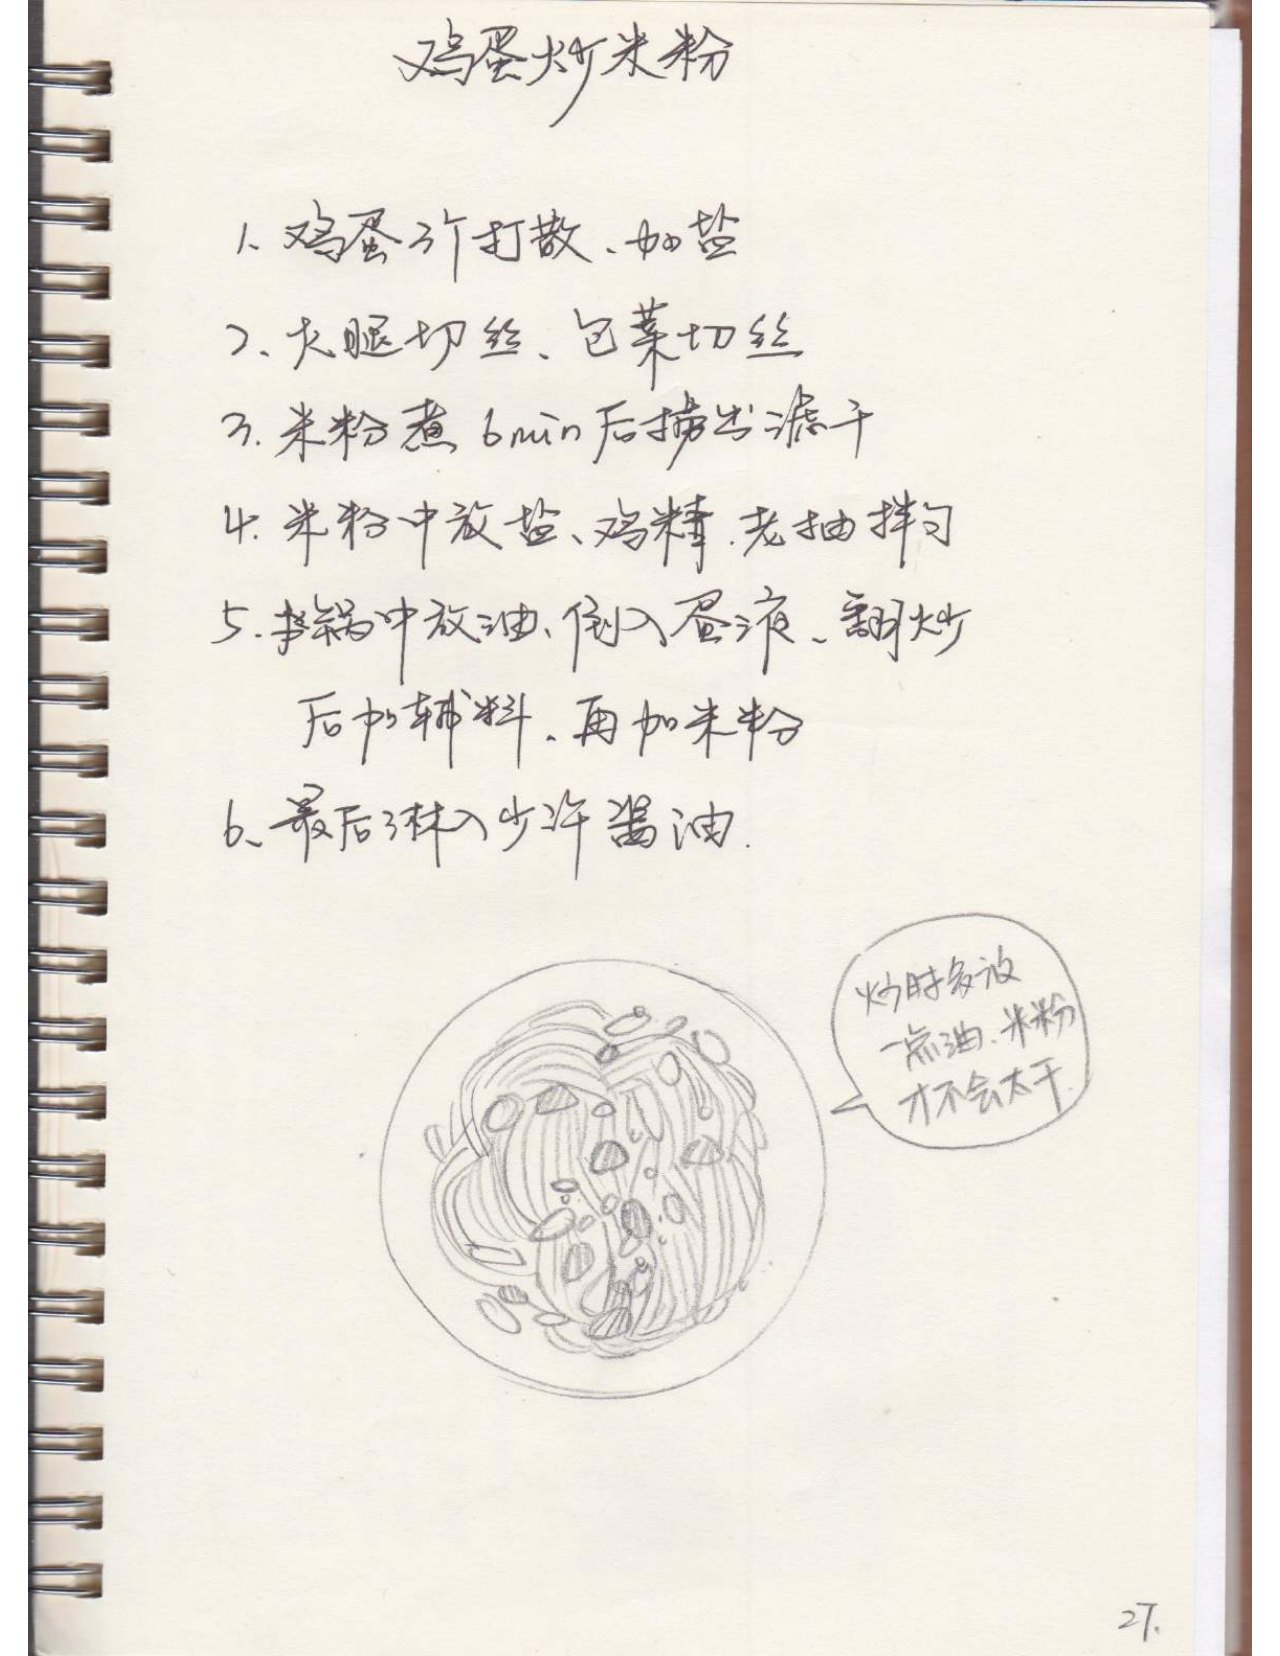 鸡蛋炒米粉
1、鸡蛋3个打散、加盐
2、火腿切丝、包菜切丝
3.米粉煮6min后捞出滤干
4.米粉中放盐、鸡精.老抽拌匀
5.锅中放油、倒入蛋液、翻炒
后加辅料、再加米粉
6、最后淋入少许酱油.
炒时多放
一点油、米粉
才不会太干.
27.